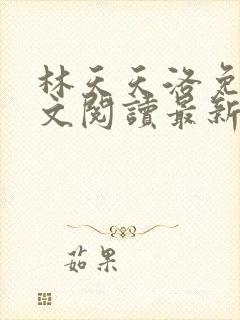 林天天洛免
文閱讀最新
茹果